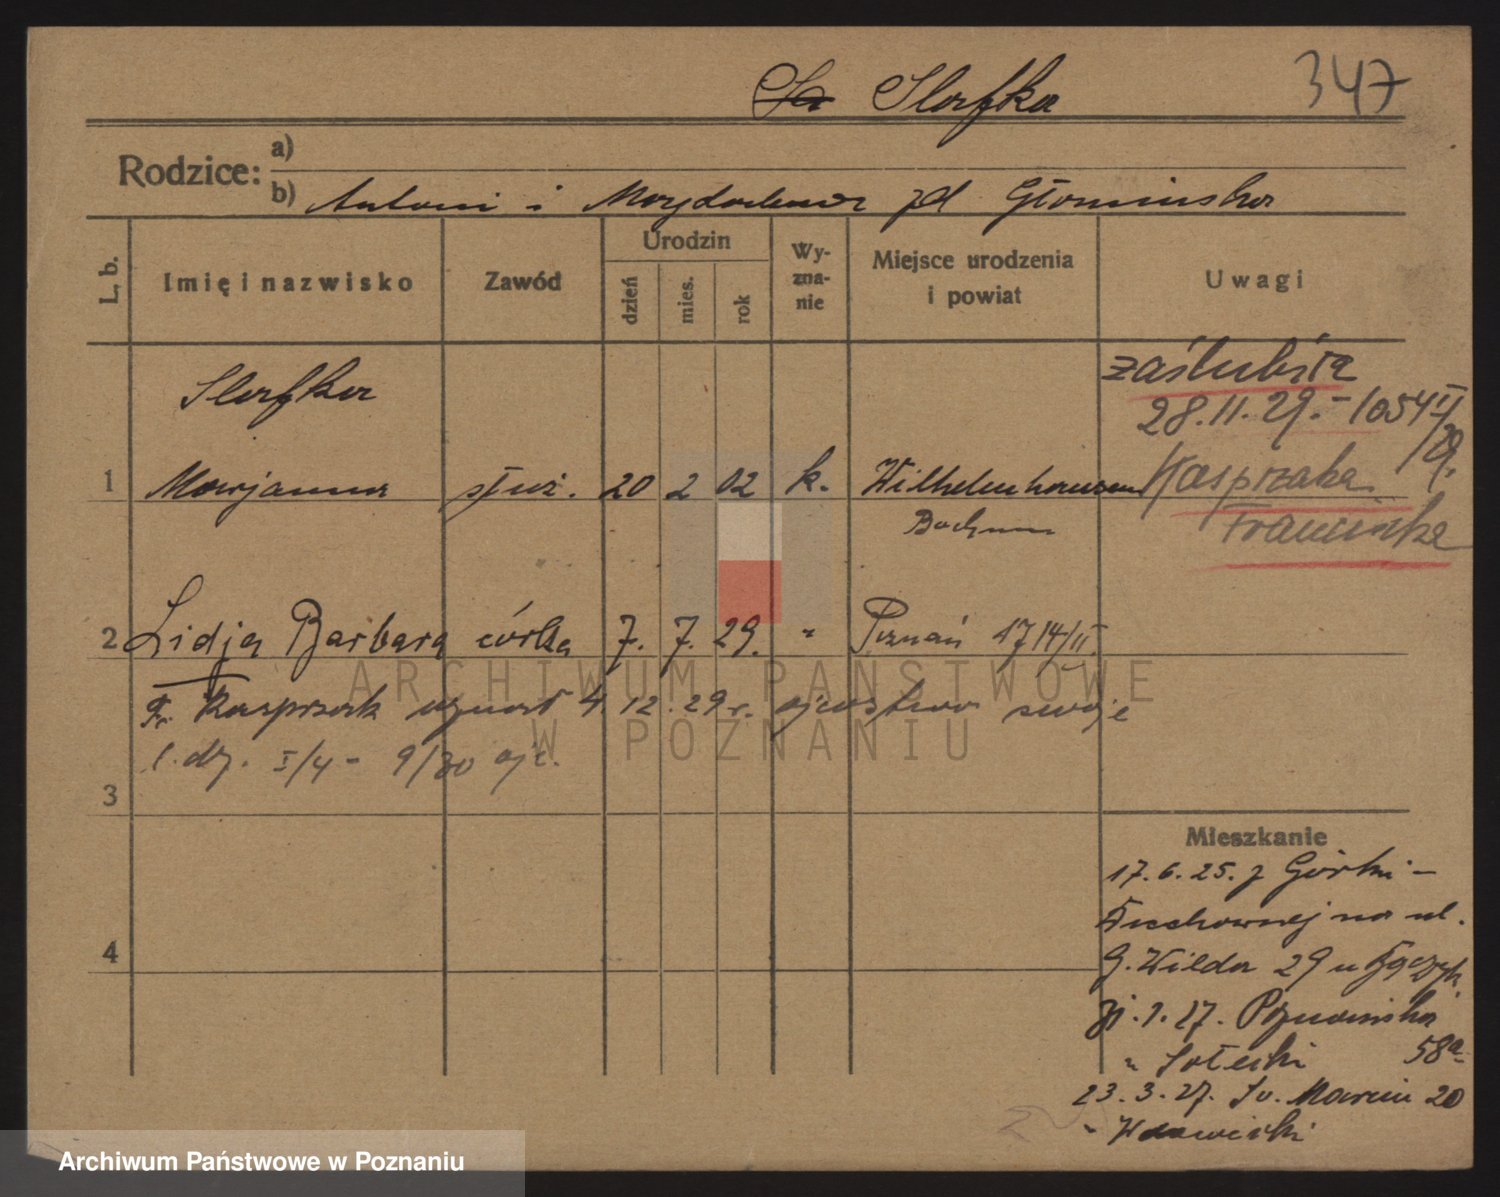 Slafka 347
Rodzice: a)
b) Antoni i Magdalena zd Głomińska
L. b. Imię i nazwisko Zawód Urodzin dzień mies. rok Wyznanie Miejsce urodzenia i powiat Uwagi
Slafka
zaślubiła
28.11.29.- 1054 II/29.
1 Marjanna służ. 20 2 02 k. Wilhelmhausen
Kasprzaka
Bochum
Franciszka
2 Lidja Barbara córka 7. 7. 29. " Poznań 1714/II.
Fr. Kasprzak uznał 4.12.29 r. ojcostwo swoje
l. dz. I/4 - 9/30 ojc.
3
Mieszkanie
17.6.25. z Górki -
na ul.
4
G. Wilda 29 u
1.27. Poznańska
58a
" Sołecki
23.3.27. Św. Marcin 20
"
ARCHIWUM PAŃSTWOWE
W POZNANIU
Archiwum Państwowe w Poznaniu